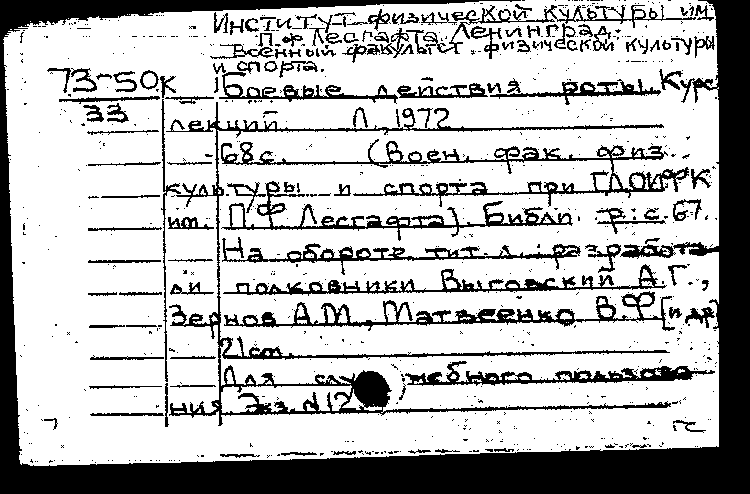 Институт физической культуры им.
П.Ф Лесгафта. Ленинград.
Военный факультет физической культуры
и спорта.
73-50к
33
Боевые действия роты. Курс
лекций. Л., 1972
68с. (Воен. фак. физ.
культуры и спорта при ГДОИФК
им. П.Ф Лесгафта). Библи. р: с. 67.
На обороте тит. л.: разработа-
ли полковники Выговский А.Г.,
Зернов А.М., Матвеенко В.Ф. [и др]
21см.
Для служебного пользова
ния Экз. №12
гс